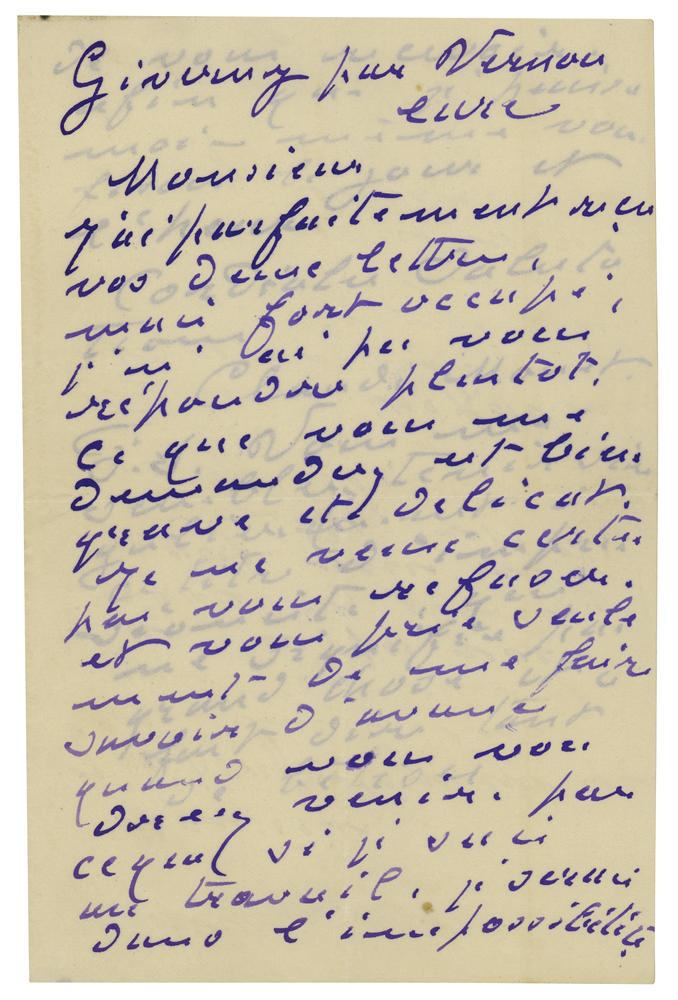 Giverny par Vernon
eure
Monsieur
j'ai parfaitement reçu
vos deux lettres,
mais fort occupé,
je n'ai pu vous
répondre plutot.
ce que vous me
demandez est bien
grave et délicat.
je ne veux certes
pas vous refuser.
et vous prie seule
ment de me faire
savoir d'avance
quand vous vou
drez venir. par
ceque si je suis
au travail, je serais
dans l'impossibilité